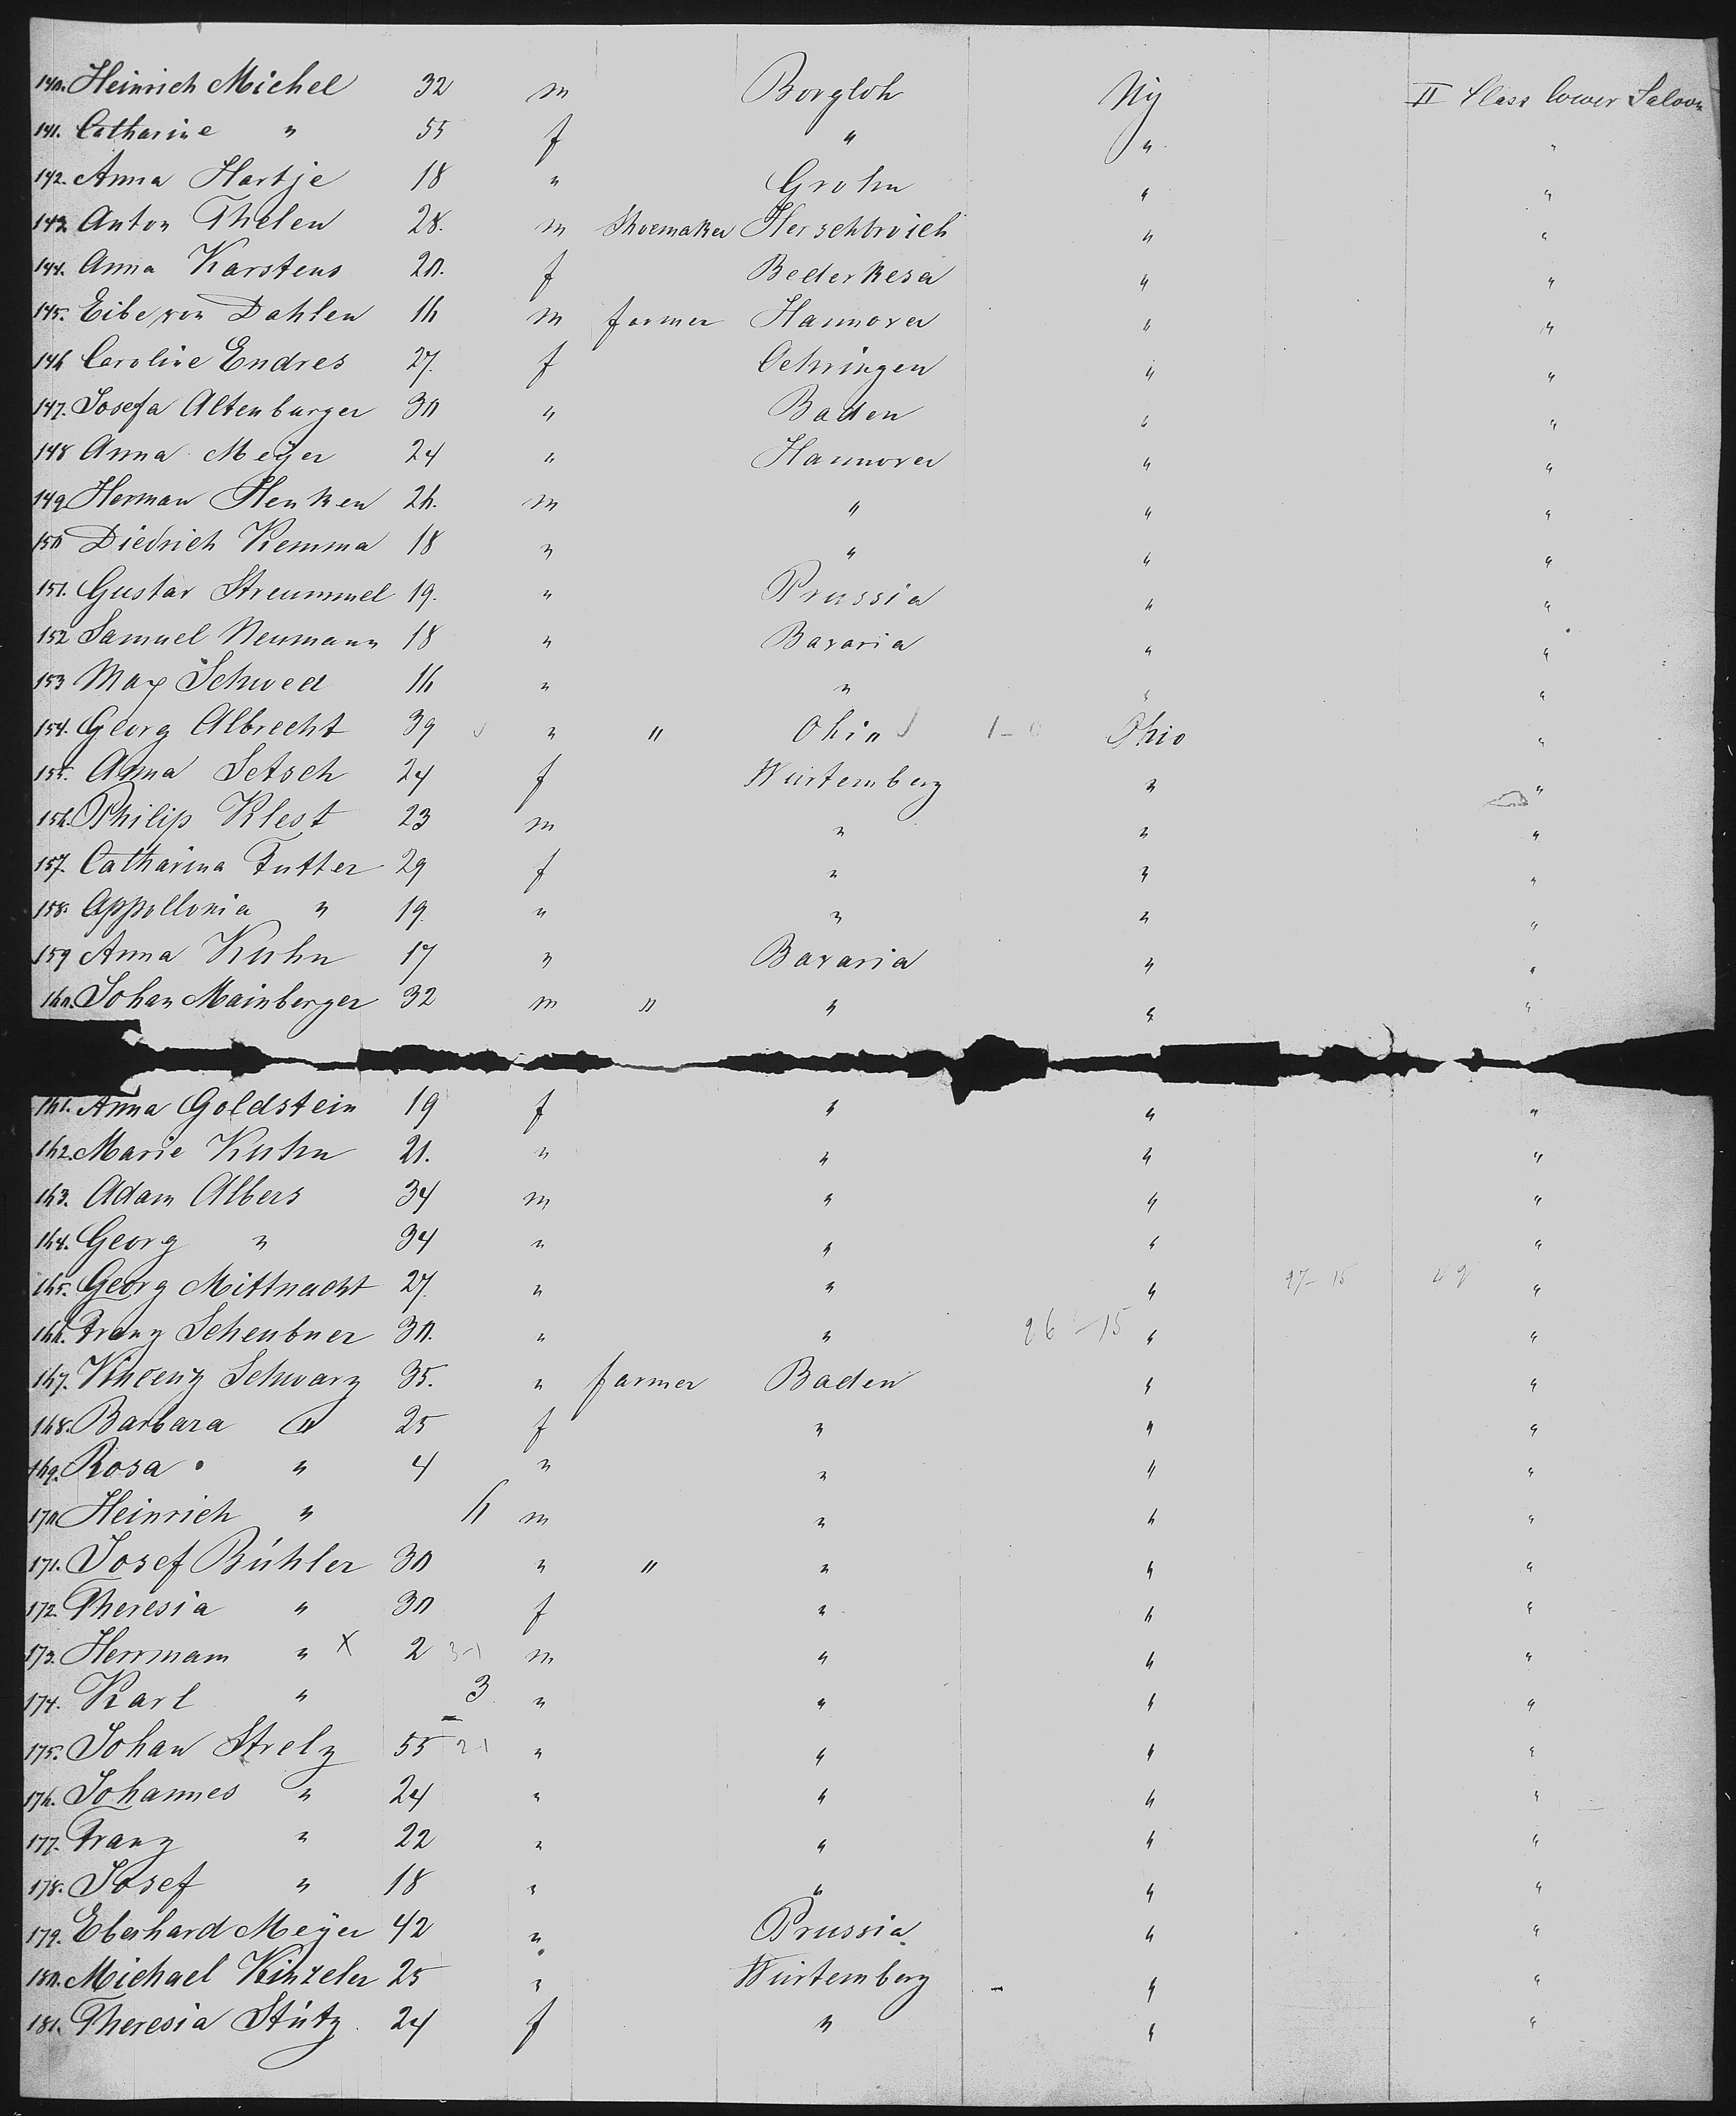 140. Heinrich Michel 32 m Borgloh Ny II Class lower Saloon
141. Catharine " 55 f " " "
142. Anna Hartje 18 " Grohn " "
143. Anton Thelen 28. m Shoemaker Herschbroich " "
144. Anna Karstens 20. f Bederkesa " "
145. Eibe von Dahlen 16 m farmer Hannover " "
146 Caroline Endres 27. f Oehringen " "
147. Josefa Altenburger 30 " Baden " "
148 Anna Meÿer 24 " Hannover " "
149 Herman Henken 26. m " " "
150 Diedrich Kemma 18 " " " "
151. Gustav Streummel 19. " Prussia " "
152 Samuel Neumann 18 " Bavaria " "
153 Max Schwed 16 " " " "
154. Georg Albrecht 39 " " Ohio Ohio "
155. Anna Setsch 24 f Würtemberg " "
156. Philip Klest 23 m " " "
157. Catharina Futter 29 f " " "
158. Appollonia " 19. " " " "
159 Anna Kuhn 17 " Bavaria " "
160. Johan Mainberger 32 m " " " "
161. Anna Goldstein 19 f " " "
162. Marie Kuhn 21. " " " "
163. Adam Albers 34 m " " "
164. Georg " 34 " " " "
165. Georg Mittnacht 27. " " " 97-15 "
166. Franz Scheubner 30. " " 26-15 " "
167. Vincenz Schwarz 35. " farmer Baden " "
168. Barbara " 25 f " " "
169. Rosa " 4 " " " "
170 Heinrich " 6 m " " "
171. Josef Bühler 30 " " " " "
172. Theresia " 30 f " " "
173. Herrmann " X 2 m " " "
174. Karl " 3 " " " "
175. Johan Strelz 55 " " " "
176. Johannes " 24 " " " "
177. Franz " 22 " " " "
178. Josef " 18 " " " "
179. Eberhard Meÿer 42 " Prussia " "
180. Michael Kinzeler 25 " Würtemberg " "
181. Theresia Stütz 24 f " " "